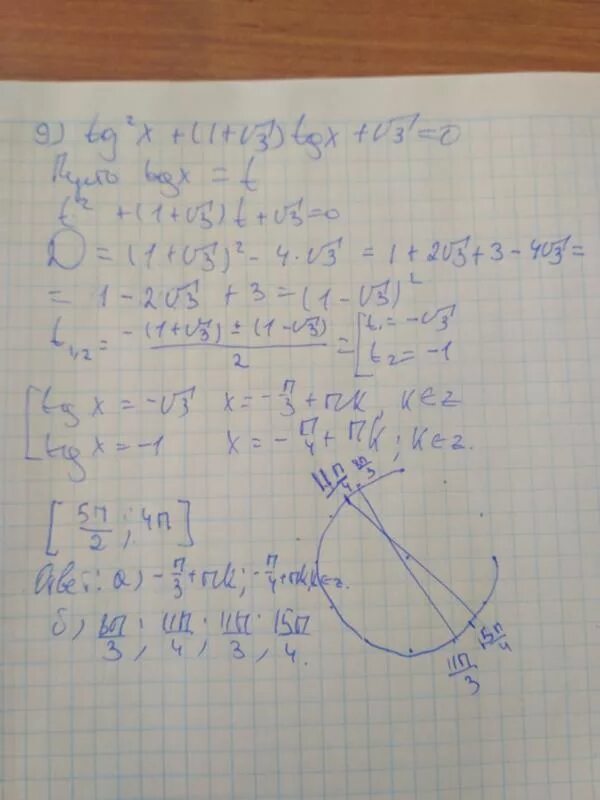 9) tg²x + (1+√3)tgx + √3 = 0
Пусть tgx = t
t² + (1+√3)t + √3 = 0
D = (1+√3)² - 4·√3 = 1 + 2√3 + 3 - 4√3 =
= 1 - 2√3 + 3 = (1-√3)²
t₁,₂ = (-(1+√3) ± (1-√3))/2 = [t₁ = -√3
t₂ = -1
[tg x = -√3 x = -π/3 + πk, k∈z
tg x = -1 x = -π/4 + πk; k∈z.
[5π/2; 4π]
11π/4 8π/3
Ответ: а) -π/3 + πk; -π/4 + πk, k∈z.
б) 8π/3; 11π/4; 11π/3; 15π/4.
15π/4
11π/3